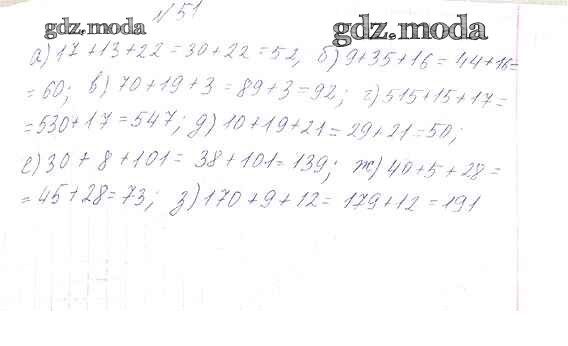 № 51
gdz.moda gdz.moda
а) 17 + 13 + 22 = 30 + 22 = 52, б) 9 + 35 + 16 = 44 + 16 =
= 60; в) 70 + 19 + 3 = 89 + 3 = 92; г) 515 + 15 + 17 =
= 530 + 17 = 547; д) 10 + 19 + 21 = 29 + 21 = 50;
е) 30 + 8 + 101 = 38 + 101 = 139; ж) 40 + 5 + 28 =
= 45 + 28 = 73; з) 170 + 9 + 12 = 179 + 12 = 191